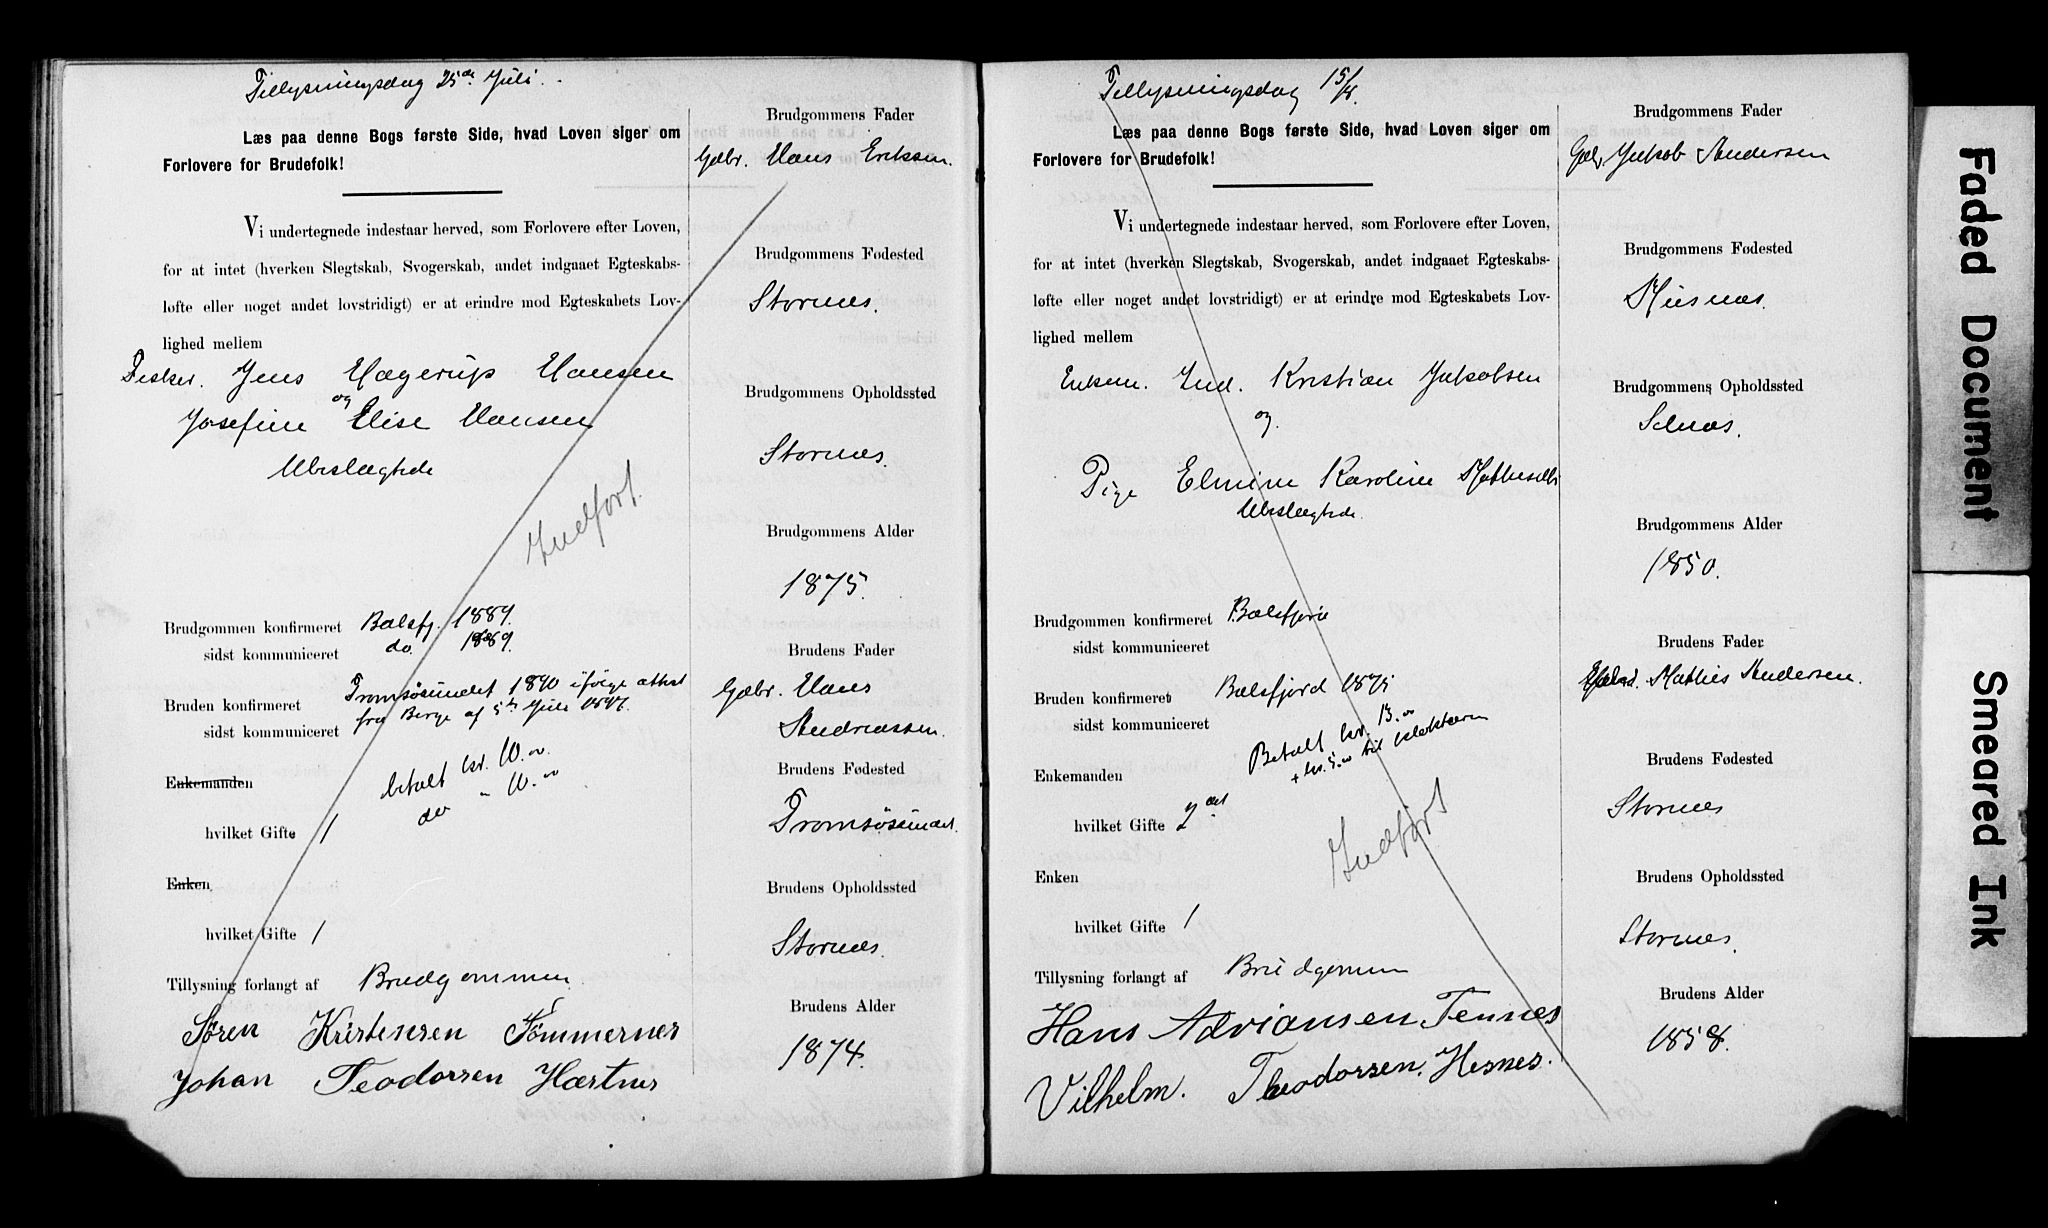 Tillysningsdag 25de Juli.
Læs paa denne Bogs første Side, hvad Loven siger om
Forlovere for Brudefolk!
Vi undertegnede indestaar herved, som Forlovere efter Loven,
for at intet (hverken Slegtskab, Svogerskab, andet indgaaet Egteskabs-
løfte eller noget andet lovstridigt) er at erindre mod Egteskabets Lov-
lighed mellem
Fisker. Jens Hagerup Hansen
og
Josefine Elise Hansen
Ubeslægtede
Indført.
Brudgommen konfirmeret Balsfj. 1889.
sidst kommuniceret do. 1889.
Bruden konfirmeret Tromsøsundet 1890 ifølge attest
sidst kommuniceret fra Berge af 5te Juli 1897.
Enkemanden betalt kr. 10.00
do " 10.00
hvilket Gifte 1
Enken
hvilket Gifte 1
Tillysning forlangt af Brudgommen
Søren Kristensen Tømmernes
Johan Teodorsen Hæstnes
Brudgommens Fader
Gbr. Hans Eriksen.
Brudgommens Fødested
Stornes.
Brudgommens Opholdssted
Stornes.
Brudgommens Alder
1875.
Brudens Fader
Gbr. Hans
Andreassen.
Brudens Fødested
Tromsøsundet.
Brudens Opholdssted
Stornes.
Brudens Alder
1874.
Tillysningsdag 15/8.
Læs paa denne Bogs første Side, hvad Loven siger om
Forlovere for Brudefolk!
Vi undertegnede indestaar herved, som Forlovere efter Loven,
for at intet (hverken Slegtskab, Svogerskab, andet indgaaet Egteskabs-
løfte eller noget andet lovstridigt) er at erindre mod Egteskabets Lov-
lighed mellem
Enkem. Ind. Kristian Jakobsen
og
Pige Elmine Karoline
Ubeslægtede.
Brudgommen konfirmeret Balsfjord
sidst kommuniceret
Bruden konfirmeret Balsfjord 1875
sidst kommuniceret
Betalt kr. 13.00
+ kr. 5.00 til klokkeren
Enkemanden
hvilket Gifte 2det
Indført
Enken
hvilket Gifte 1
Tillysning forlangt af Brudgommen
Hans Adriansen Tennes
Vilhelm. Theodorsen. Hesnes.
Brudgommens Fader
Jakob Andersen
Brudgommens Fødested
Brudgommens Opholdssted
Selnæs.
Brudgommens Alder
1850.
Brudens Fader
Mathis Andersen.
Brudens Fødested
Stornes
Brudens Opholdssted
Stornes.
Brudens Alder
1858.
Faded Document
Smeared Ink